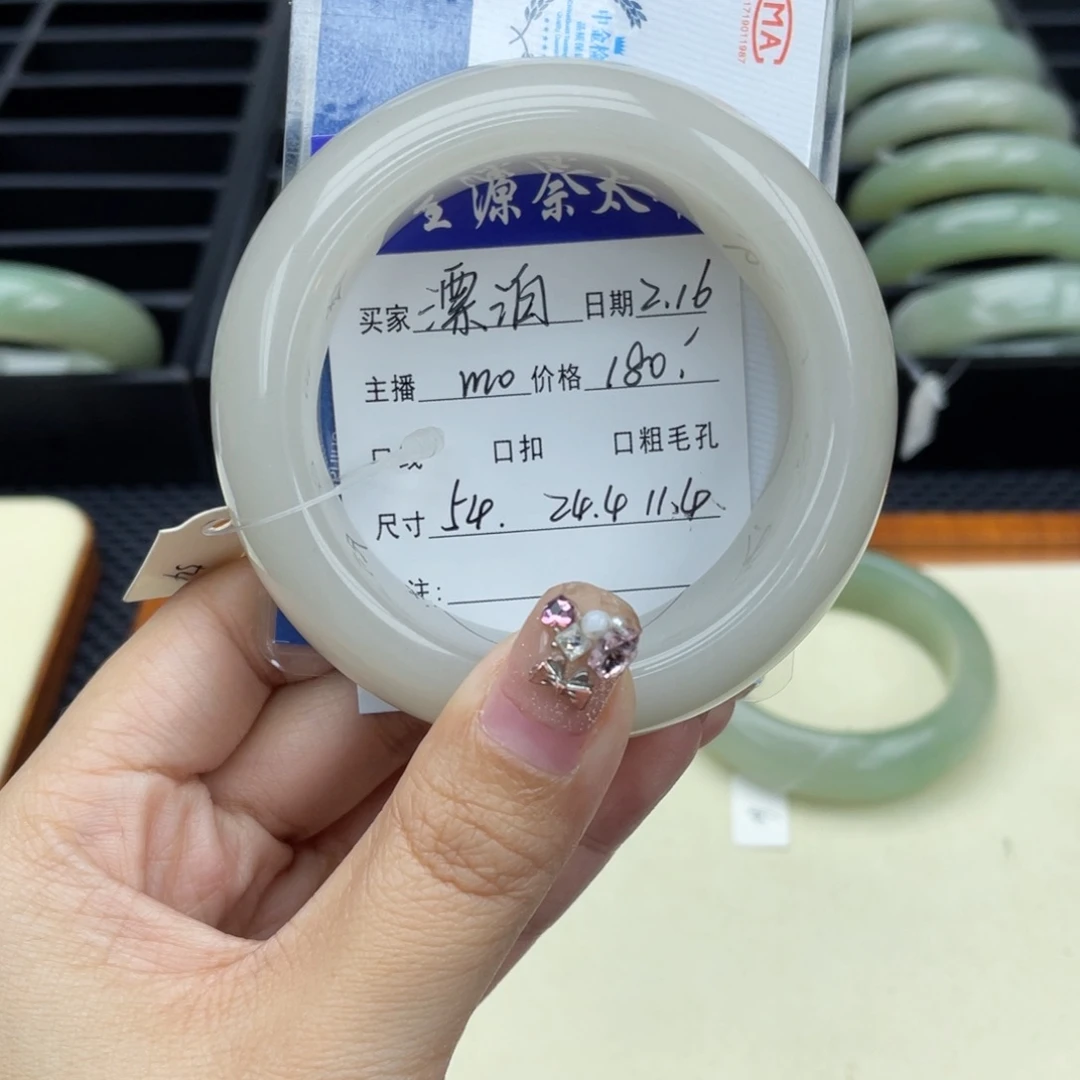 中金检
MA
1719011987
源祭太
买家 漂泊 日期 2.16
主播 mo 价格 180.
口扣 口粗毛孔
尺寸 54. 24.4 11.4
注:
54